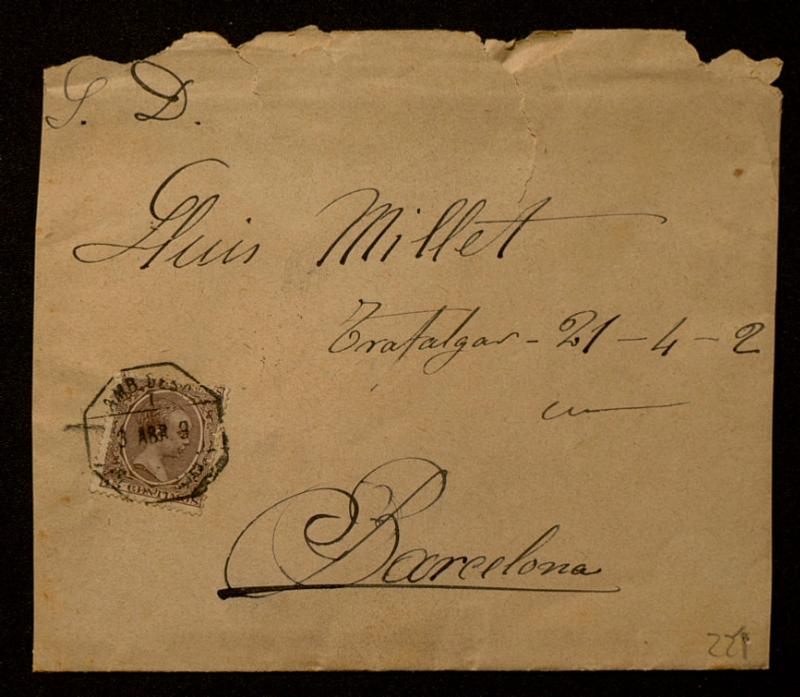 S. D.
Lluis Millet
Trafalgar - 21 - 4 - 2
Barcelona
AMB. DES
1
3 ABR 9
221